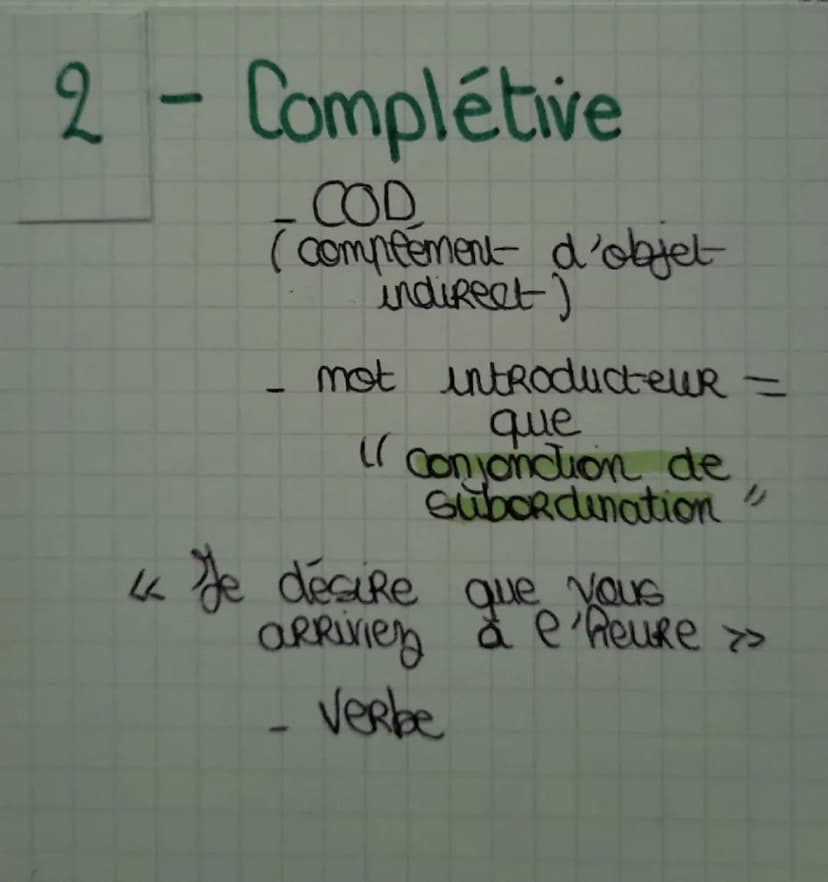 2 - Complétive
- COD
(complément d'objet
indirect)
- mot introducteur =
que
" conjonction de
subordination "
« Je désire que vous
arriviez à l'heure »
- Verbe